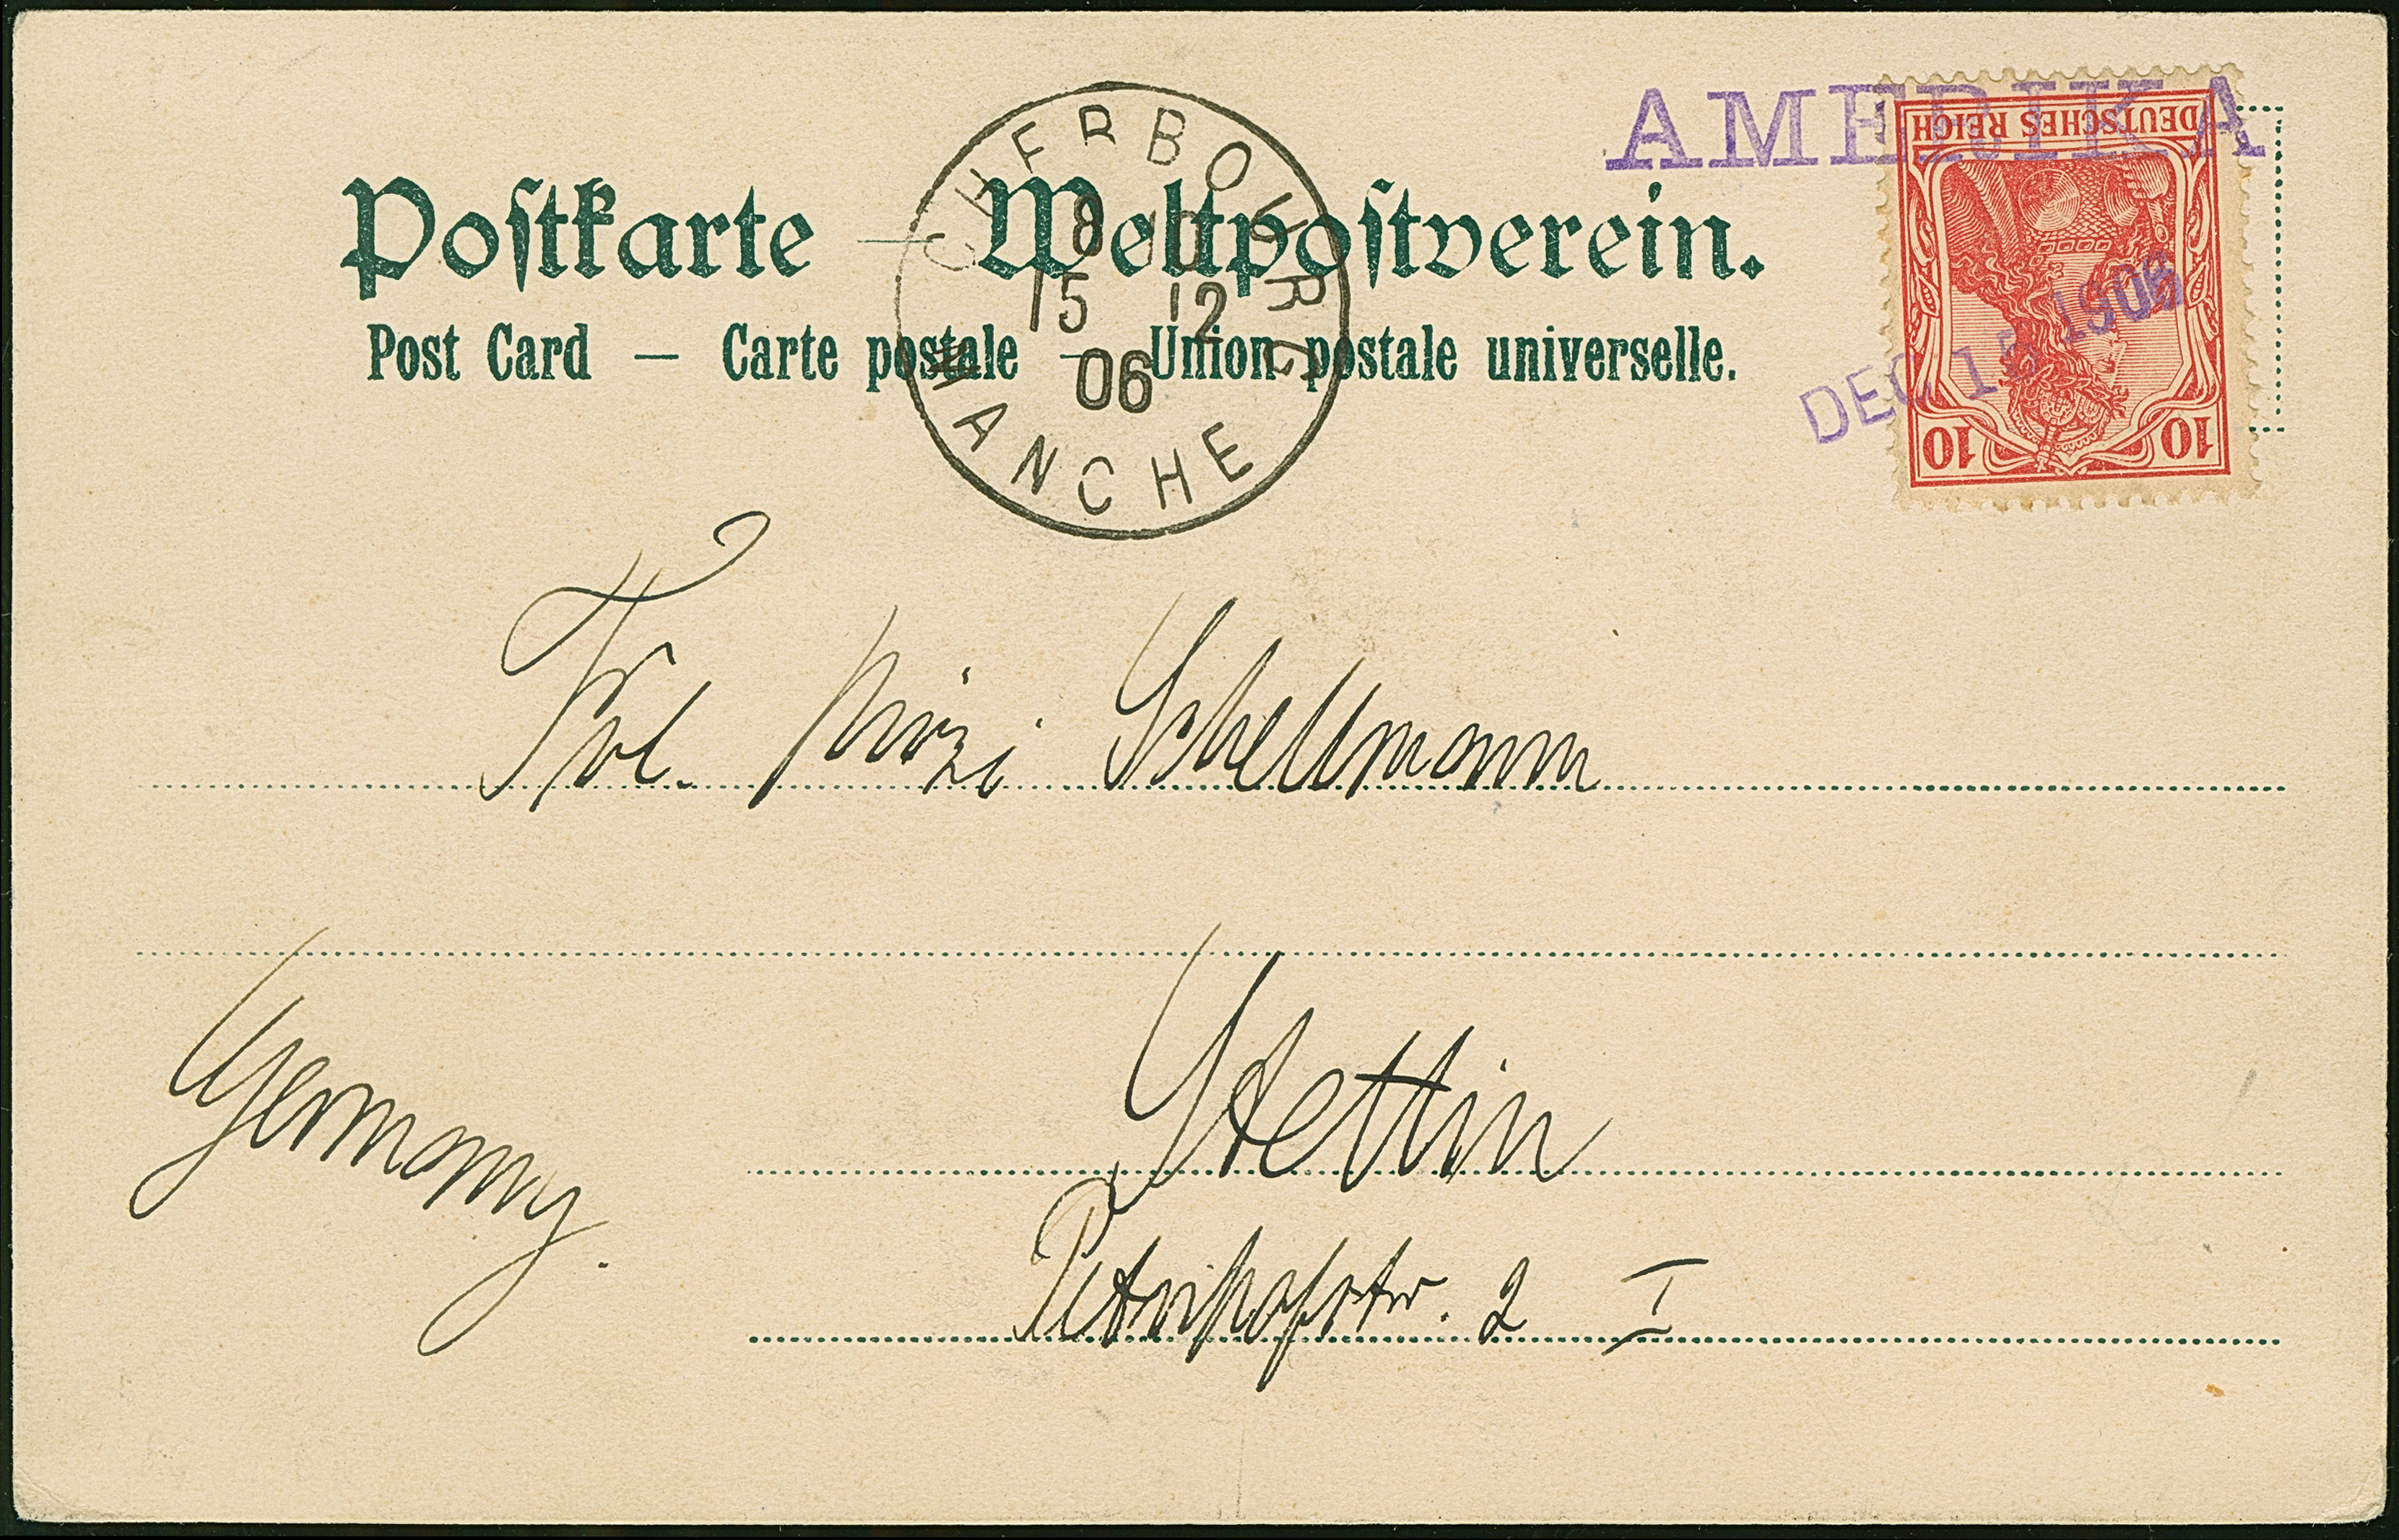 AMERIKA
DEUTSCHES REICH
10 10
DEC 15 1906
CHERBOURG
8 15 12
06
MANCHE
Postkarte – Weltpostverein.
Post Card – Carte postale – Union postale universelle.
Frl. Mizi Schellmann
Stettin
Germany.
Petrihofstr. 2 I